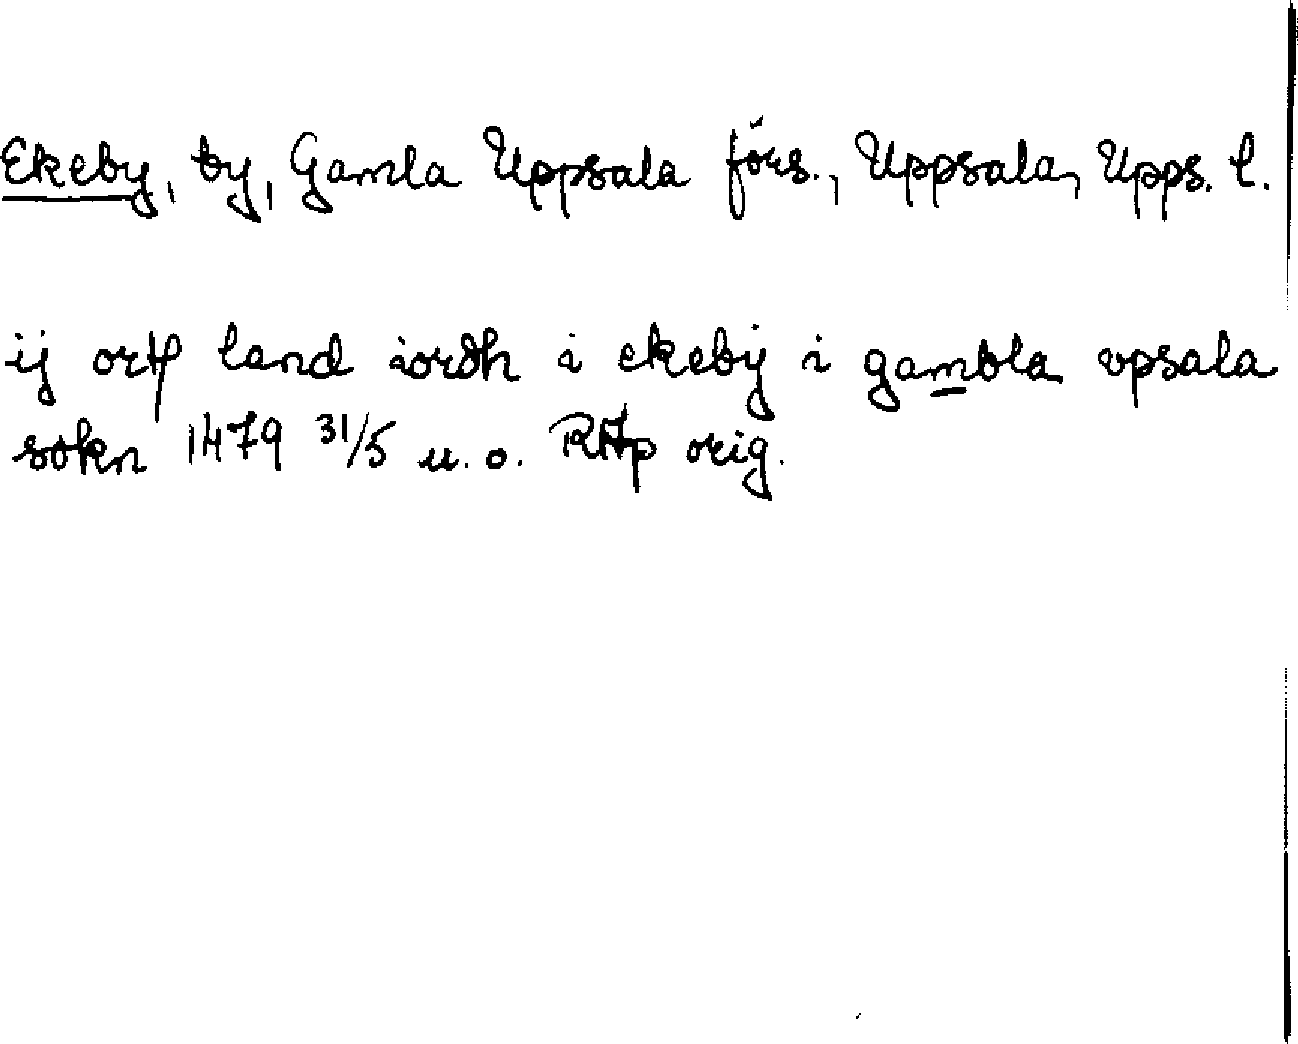 Ekeby, by, Gamla Uppsala förs., Uppsala, Upps. l.
ij land iordh i ekeby i gambla vpsala
sokn 1479 31/5 u. o. RAp orig.